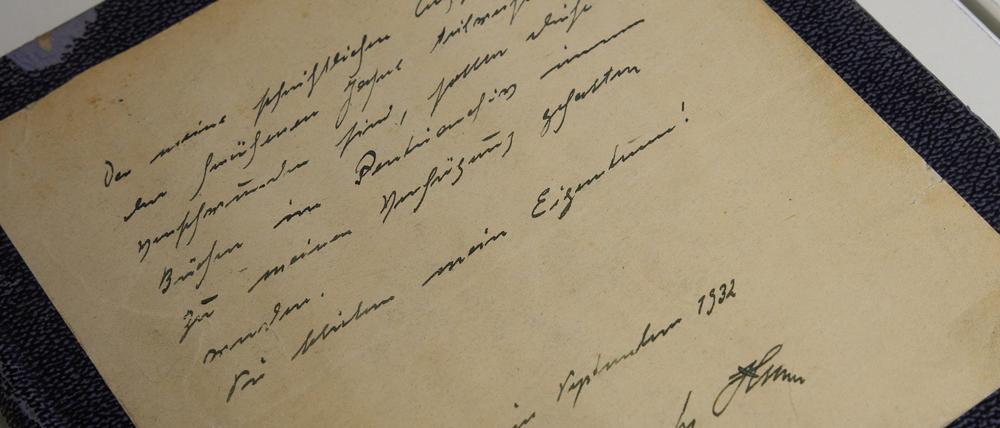 Da meine schriftlichen
der früheren Jahre teilweise
verschwunden sind, sollen diese
Bücher im Pankiavchiv immer
zu meiner Verfügung gehalten
werden.
Sie bleiben mein Eigentum!
im September 1932